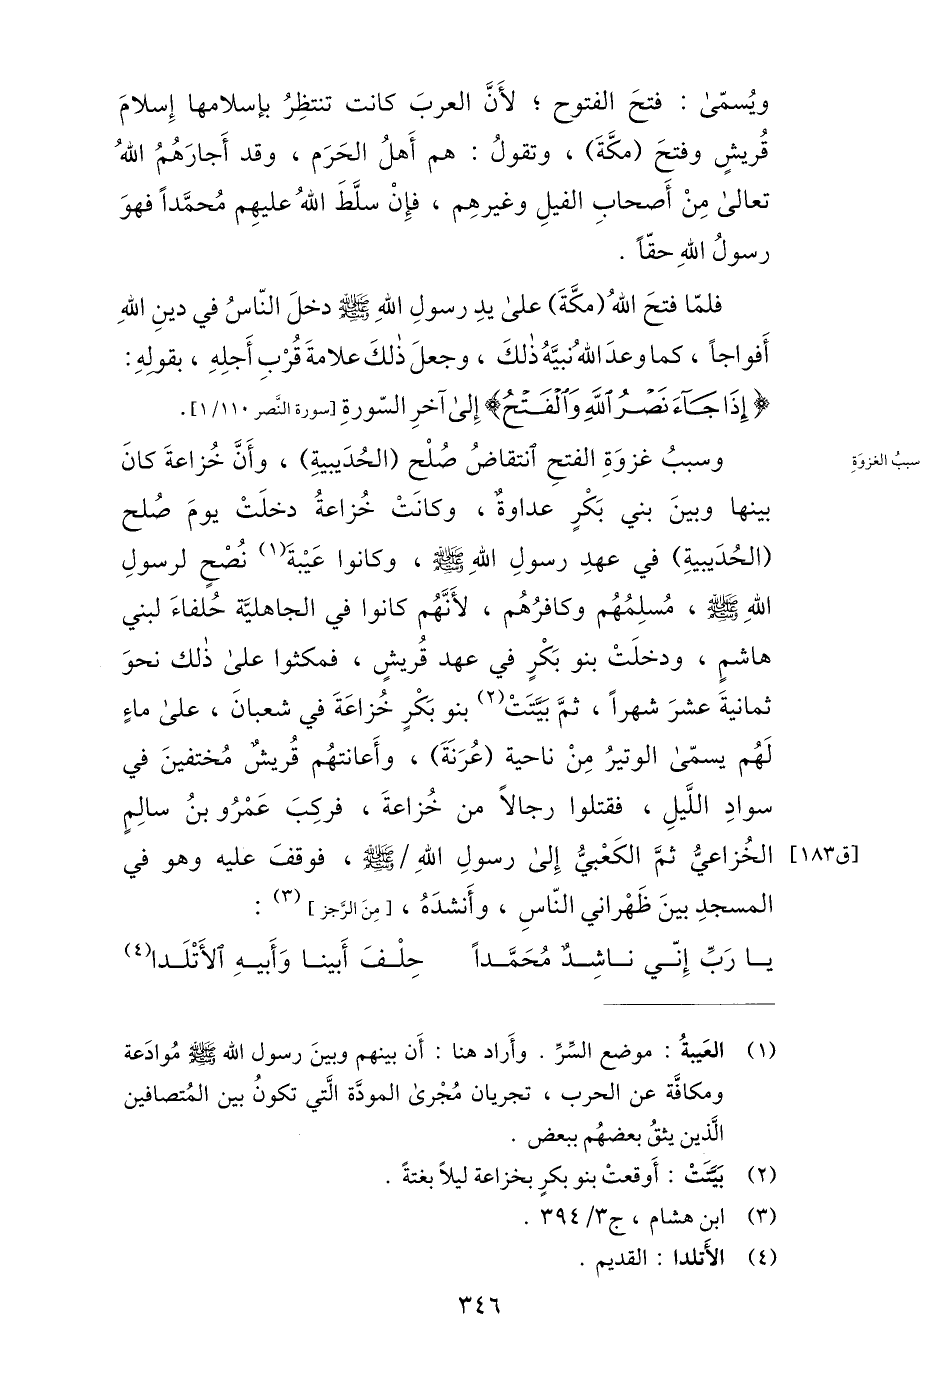 ويُسمّىٰ : فتحَ الفتوح ؛ لأَنَّ العربَ كانت تنتظِرُ بإسلامها إِسلامَ
قُريشٍ وفتحَ (مكَّةَ) ، وتقولُ : هم أَهلُ الحَرَم ، وقد أَجارَهُمُ اللهُ
تعالىٰ مِنْ أَصحابِ الفيلِ وغيرهِم ، فإِنْ سلَّطَ اللهُ عليهِم مُحمَّداً فهوَ
رسولُ اللهِ حقّاً .
فلمّا فتحَ اللهُ (مكَّةَ) علىٰ يدِ رسولِ اللهِ ﷺ دخلَ النّاسُ في دينِ اللهِ
أَفواجاً ، كما وعدَ اللهُ نبيَّهُ ذٰلكَ ، وجعلَ ذٰلكَ علامةَ قُرْبِ أَجلِهِ ، بقولِهِ :
﴿ إِذَا جَآءَ نَصْرُ ٱللَّهِ وَٱلْفَتْحُ﴾ إِلىٰ آخرِ السّورةِ [سورة النَّصر ١١٠/ ١] .
سببُ الغزوَةِ
وسببُ غزوَةِ الفتحِ ٱنتقاضُ صُلْحِ (الحُدَيبيةِ) ، وأَنَّ خُزاعةَ كانَ
بينها وبينَ بني بَكْرٍ عداوةٌ ، وكانَتْ خُزاعةُ دخلَتْ يومَ صُلح
(الحُدَيبيةِ) في عهدِ رسولِ اللهِ ﷺ ، وكانوا عَيْبَةَ(١) نُصْحٍ لرسولِ
اللهِ ﷺ ، مُسلِمُهُم وكافرُهُم ، لأَنَّهُم كانوا في الجاهليَّة حُلفاءَ لبني
هاشمٍ ، ودخلَتْ بنو بَكْرٍ في عهد قُريشٍ ، فمكثوا علىٰ ذٰلك نحوَ
ثمانيةَ عشرَ شهراً ، ثمَّ بَيَّتَتْ(٢) بنو بَكْرٍ خُزاعَةَ في شعبانَ ، علىٰ ماءٍ
لَهُم يسمّىٰ الوتيرُ مِنْ ناحية (عُرَنَةَ) ، وأَعانتهُم قُريشٌ مُختفينَ في
سوادِ اللَّيلِ ، فقتلوا رجالاً من خُزاعةَ ، فركِبَ عَمْرُو بنُ سالِمٍ
[ق١٨٣] الخُزاعيُّ ثمَّ الكَعْبيُّ إِلىٰ رسولِ اللهِ /ﷺ ، فوقفَ عليه وهو في
المسجدِ بينَ ظَهْراني النّاسِ ، وأَنشدَهُ ، [مِنَ الرَّجز] (٣) :
يـا رَبِّ إِنّـي نـاشِـدٌ مُحَمَّـداً حِلْـفَ أَبينـا وَأَبيـهِ ٱلأَتْلَـدا(٤)
(١) العَيبةُ : موضع السِّرِّ . وأَراد هنا : أَن بينهم وبينَ رسول الله ﷺ مُوادَعة
ومكافَّة عن الحرب ، تجريان مُجْرىٰ المودَّة الَّتي تكونُ بين المُتصافين
الَّذين يثقُ بعضهُم ببعض .
(٢) بَيَّتَتْ : أَوقعتْ بنو بكرٍ بخزاعة ليلاً بغتةً .
(٣) ابن هشام ، ج٣/ ٣٩٤ .
(٤) الأَتلدا : القديم .
٣٤٦